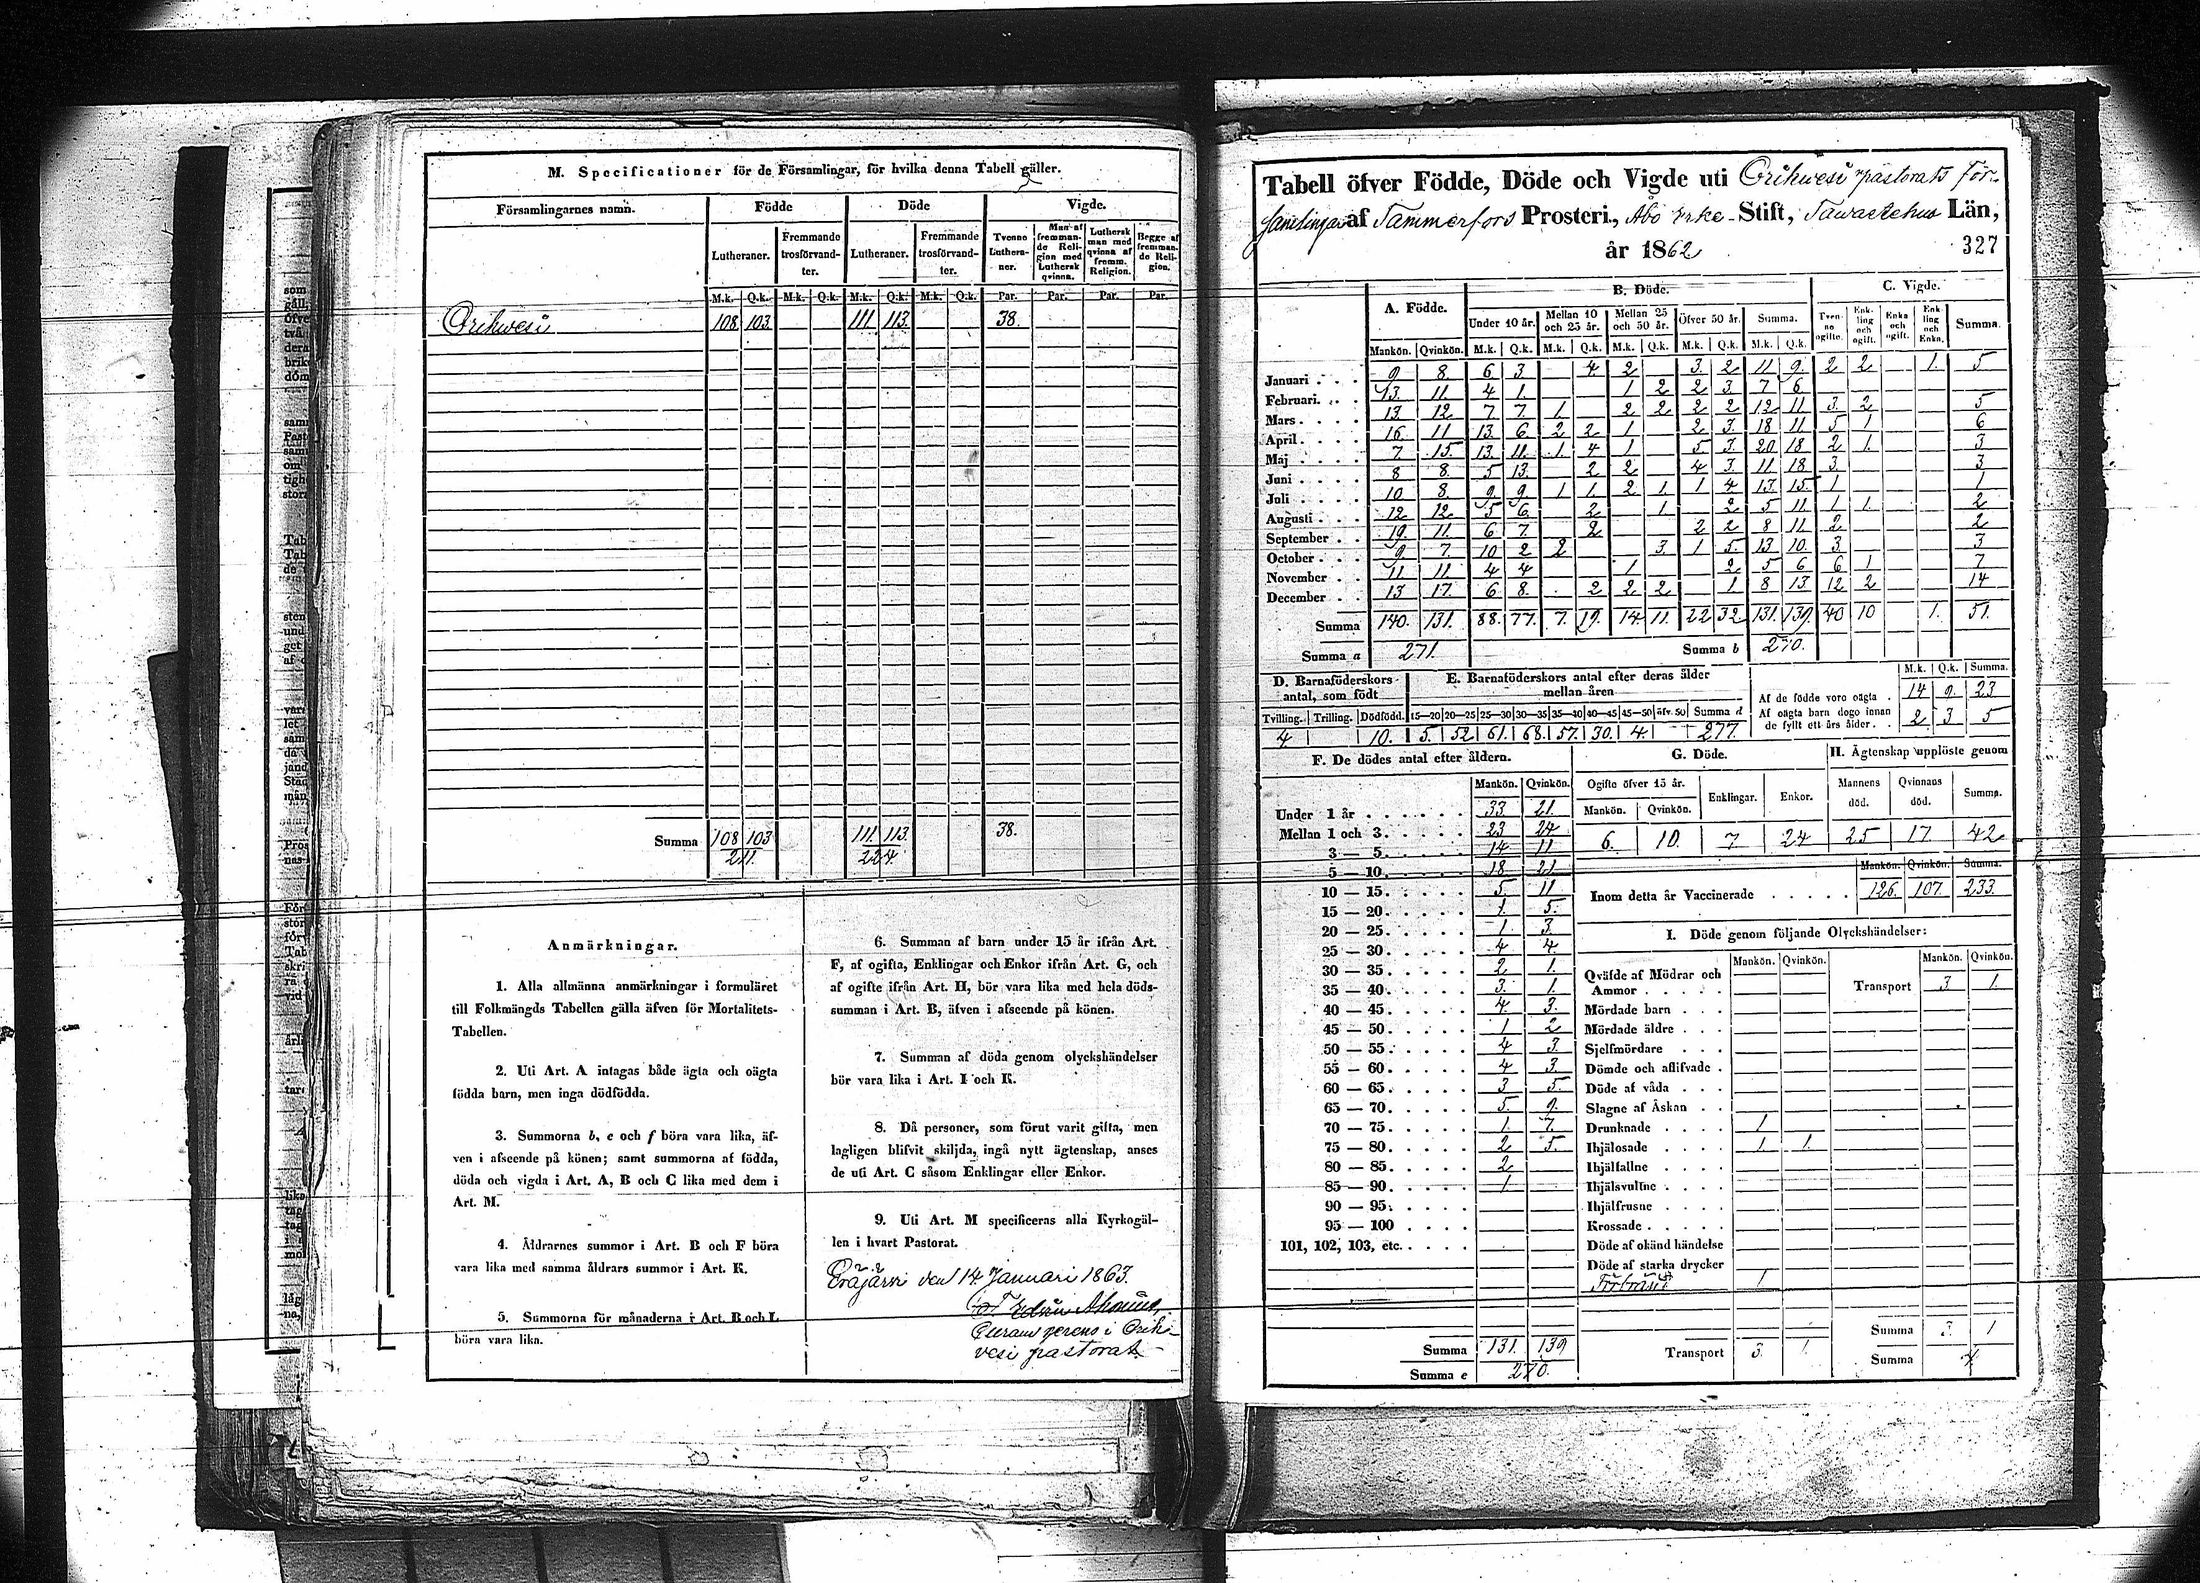 M. Specificationer för de Församlingar, för hvilka denna Tabell gäller.
Församlingarnes namn. Födde Döde Vigde.
Lutheraner. Fremmande trosförvandter. Lutheraner. Fremmande trosförvandter. Tvenne Lutheraner. Man af fremmande Religion med Luthersk qvinna. Luthersk man med qvinna af fremm. Religion. Begge af fremmande Religion.
M.k. Q.k. M.k. Q.k. M.k. Q.k. M.k. Q.k. Par. Par. Par. Par.
Orihwesi 108 103 111 113. 38.
Summa 108 103 111 113. 38.
211. 224.
Anmärkningar.
1. Alla allmänna anmärkningar i formuläret
till Folkmängds Tabellen gälla äfven för Mortalitets-
Tabellen.
2. Uti Art. A intagas både ägta och oägta
födda barn, men inga dödfödda.
3. Summorna b, e och f böra vara lika, äf-
ven i afseende på könen; samt summorna af födda,
döda och vigda i Art. A, B och C lika med dem i
Art. M.
4. Åldrarnes summor i Art. B och F böra
vara lika med samma åldrars summor i Art. K.
5. Summorna för månaderna i Art. B och L
böra vara lika.
6. Summan af barn under 15 år ifrån Art.
F, af ogifta, Enklingar och Enkor ifrån Art. G, och
af ogifte ifrån Art. H, bör vara lika med hela döds-
summan i Art. B, äfven i afseende på könen.
7. Summan af döda genom olyckshändelser
bör vara lika i Art. I och K.
8. Då personer, som förut varit gifta, men
lagligen blifvit skiljda, ingå nytt ägtenskap, anses
de uti Art. C såsom Enklingar eller Enkor.
9. Uti Art. M specificeras alla Kyrkogäl-
len i hvart Pastorat.
Eräjärvi den 14 Januari 1863.
Curam gerens i Orih-
vesi pastorat
Tabell öfver Födde, Döde och Vigde uti Orihwesi pastorats för-
samlingar af Tammerfors Prosteri., Åbo Erke-Stift, Tawastehus Län,
år 1862
327
A. Födde. B. Döde. C. Vigde.
Under 10 år. Mellan 10 och 25 år. Mellan 25 och 50 år. Öfver 50 år. Summa. Tvenno ogifte. Enkling och ogift. Enka och ogift. Enkling och Enka. Summa.
Mankön. Qvinkön. M.k. Q.k. M.k. Q.k. M.k. Q.k. M.k. Q.k. M.k. Q.k.
Januari . . . 9 8 6 3 4 2 3 2 11 9 2 2 1. 5
Februari. . . 13. 11. 4 1. 1 2 2 3. 7 6
Mars . . . . 13 12 7 7. 1 2 2 2 2 12 11 3. 2 5
April . . . . 16 11 13. 6 2 2 1 2 3. 18 11 5 1 6
Maj . . . . 7 15. 13. 11. 1 4 1 5 3. 20 18 2 1. 3
Juni . . . . 8 8. 5 13. 2 2 4 3. 11 18 3. 3
Juli . . . . 10 8. 9 9 1 1. 2 1. 1 4 13. 15. 1 1
Augusti . . . 12 12 5 6. 2 1. 2 5 11 1 1. 2
September . . 19. 11. 6 7. 2 2 2 8 11 2. 2
October . . . 9 7. 10 2 2 3. 1 5. 13 10. 3. 3
November . . 11 11. 4 4 1 2 5 6 6 1 7
December . . 13 17. 6. 8. 2 2 2 1 8 13 12 2 14
Summa 140. 131. 88. 77. 7. 19. 14 11. 22 32 131. 139. 40 10 1. 51.
Summa a 271. Summa b 270.
D. Barnaföderskors antal, som födt
E. Barnaföderskors antal efter deras ålder mellan åren
Tvilling. Trilling. Dödfödd. 15—20 20—25 25—30 30—35 35—40 40—45 45—50 öfv. 50 Summa d
4 10. 5. 52 61. 68. 57. 30. 4. 277.
M.k. Q.k. Summa.
Af de födde voro oägta . 14 9. 23
Af oägta barn dogo innan de fyllt ett års ålder. . 2 3 5
F. De dödes antal efter åldern.
Mankön. Qvinkön.
Under 1 år . . . . . . 33 21.
Mellan 1 och 3. . . . . 23 24
3 — 5. . . . . 14 11
5 — 10. . . . . 18 21
10 — 15. . . . . 5. 11
15 — 20. . . . . 1. 5.
20 — 25. . . . . 1 3
25 — 30. . . . . 4 4
30 — 35. . . . . 2 1.
35 — 40. . . . . 3. 1.
40 — 45. . . . . 4. 3.
45 — 50. . . . . 1 2
50 — 55. . . . . 4 3.
55 — 60. . . . . 4 3.
60 — 65. . . . . 3 5.
65 — 70. . . . . 5. 9.
70 — 75. . . . . 1. 7.
75 — 80. . . . . 2 5.
80 — 85. . . . . 2
85 — 90. . . . . 1
90 — 95. . . . .
95 — 100 . . . .
101, 102, 103, etc. . . . .
Summa 131. 139
Summa e 270.
G. Döde.
Ogifte öfver 15 år. Enklingar. Enkor.
Mankön. Qvinkön.
6. 10. 7 24
H. Ägtenskap upplöste genom
Mannens död. Qvinnans död. Summa.
25 17 42
Mankön. Qvinkön. Summa.
Inom detta år Vaccinerade . . . . . 126. 107. 233.
I. Döde genom följande Olyckshändelser:
Mankön. Qvinkön. Mankön. Qvinkön.
Qväfde af Mödrar och Ammor . . . . . Transport 3 1.
Mördade barn . . .
Mördade äldre . . .
Sjelfmördare . . .
Dömde och aflifvade .
Döde af våda . . .
Slagne af Åskan . .
Drunknade . . . . 1
Ihjälosade . . . . 1 1.
Ihjälfallne . . . .
Ihjälsvultne . . . .
Ihjälfrusne . . . .
Krossade . . . . .
Döde af okänd händelse
Döde af starka drycker
Förbränd 1
Summa 3. 1
Transport 3. 1. Summa 4.